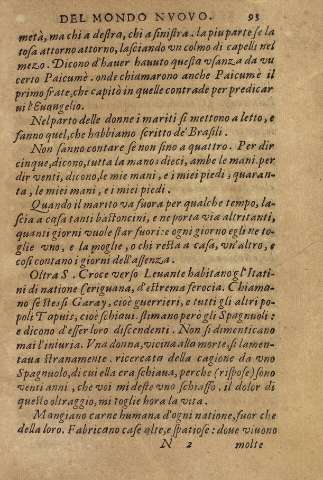 DEL MONDO NVOVO. 93
metà, ma chi a destra, chi a sinistra. la piu parte se la
tosa attorno attorno, lasciando vn colmo di capelli nel
mezo. Dicono d'hauer hauuto questa vsanza da vn
certo Paicumè. onde chiamarono anche Paicumè il
primo frate, che capitò in quelle contrade per predicar
ui l'Euangelio.
Nel parto delle donne i mariti si mettono a letto, e
fanno quel, che habbiamo scritto de' Brasili.
Non sanno contare se non sino a quattro. Per dir
cinque, dicono, tutta la mano: dieci, ambe le mani. per
dir venti, dicono, le mie mani, e i miei piedi, quaran-
ta, le miei mani, e i miei piedi.
Quando il marito va fuora per qualche tempo, la-
scia a casa tanti bastoncini, e ne porta via altritanti,
quanti giorni vuole star fuori: e ogni giorno egli ne to-
glie vno, e la moglie, o chi resta a casa, vn'altro, e
così contano i giorni dell'assenza.
Oltra S. Croce verso Leuante habitano gl'Itati-
ni di natione Ceriguana, d'estrema ferocia. Chiama-
no se stessi Garay, cioè guerrieri, e tutti gli altri po-
poli Tapuis, cioè schiaui. stimano però gli Spagnuoli:
e dicono d'esser loro discendenti. Non si dimenticano
mai l'iniuria. Vna donna, vicina alla morte, si lamen-
taua stranamente. ricercata della cagione da vno
Spagnuolo, di cui ella era schiaua, perche (rispose) sono
venti anni, che voi mi deste vno schiaffo. il dolor di
questo oltraggio, mi toglie hora la vita.
Mangiano carne humana d'ogni natione, fuor che
della loro. Fabricano case alte, e spatiose: doue viuono
N 2 molte